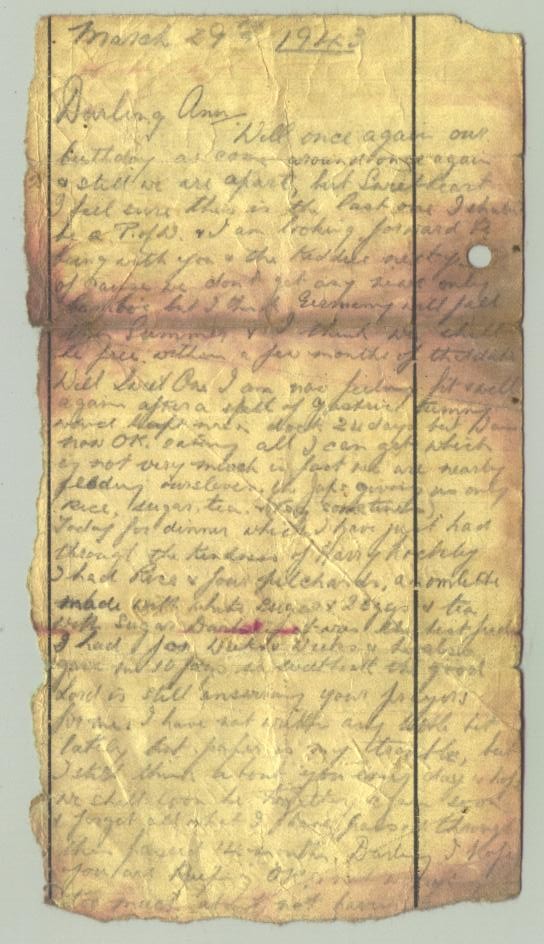 March 29th 1943
Darling Ann
Well once again our
birthday as come around once again
& still we are apart, but Sweetheart
I feel sure this is the last one I shall
be a P.of.W. & I am looking forward to
being with you & the kiddies next year
of course we don't get any news only
but I think Germany will fall
this Summer & I think we shall
be free within a few months of that date
Well Sweet One I am now feeling fit & well
again after a spell of gastric tummy
24 days but I am
now OK. eating all I can get which
is not very much in fact we are nearly
feeding ourselves, the Japs giving us only
Rice, sugar, tea.
Today for dinner which I have just had
through the kindness of Harry
I had Rice & four pilchards, an omlette
made with white sugar & 2 eggs & tea
with Sugar Darling it was the best feed
I had for Weeks & Weeks & he also
gave me 10 fags so sweetheart the good
Lord is still answering your prayers
for me. I have not written any
lately but paper is my trouble, but
I still think about you every day & hope
we shall soon be together again soon
& forget all what I have passed through
this passed 14 months, Darling I hope
you are keeping OK. &
too much about not having